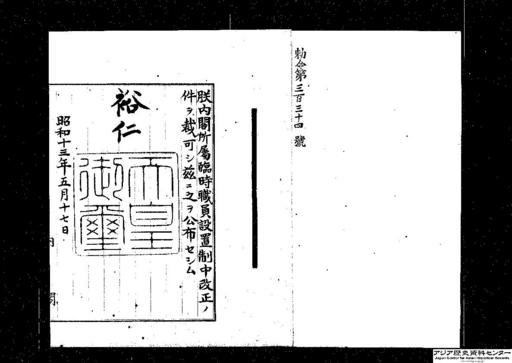 勅令第三百三十四號
朕內閣所屬臨時職員設置制中改正ノ
件ヲ裁可シ茲ニ之ヲ公布セシム
裕仁
天皇
御璽
昭和十三年五月十七日
內閣
アジア歴史資料センター
Japan Center for Asian Historical Records